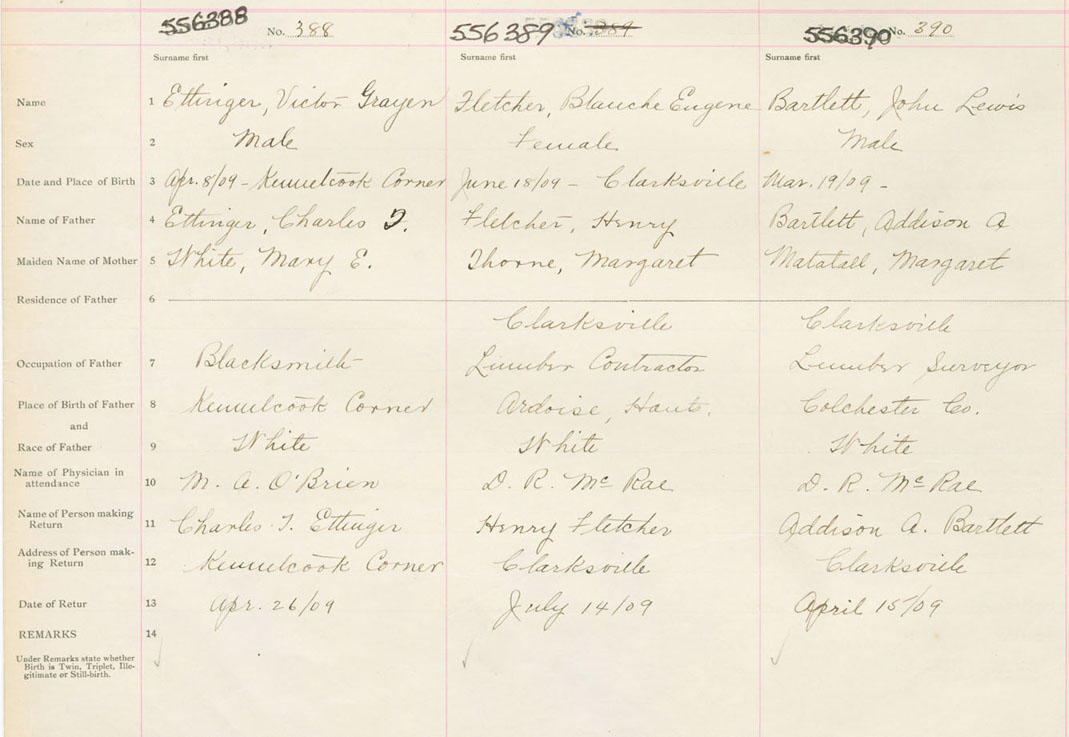 556388 No. 388 556389 No. 389 556390 No. 390
Surname first Surname first Surname first
Name 1 Ettinger, Victor Grayen Fletcher, Blanche Eugene Bartlett, John Lewis
Sex 2 Male Female Male
Date and Place of Birth 3 Apr. 8/09 - Kennetcook Corner June 18/09 - Clarksville Mar. 19/09 -
Name of Father 4 Ettinger, Charles T. Fletcher, Henry Bartlett, Addison A
Maiden Name of Mother 5 White, Mary E. Thorne, Margaret Matatall, Margaret
Residence of Father 6
Clarksville Clarksville
Occupation of Father 7 Blacksmith Lumber Contractor Lumber Surveyor
Place of Birth of Father 8 Kennetcook Corner Ardoise, Hants. Colchester Co.
and
Race of Father 9 White White White
Name of Physician in
attendance 10 M. A. O'Brien D. R. McRae D. R. McRae
Name of Person making
Return 11 Charles T. Ettinger Henry Fletcher Addison A. Bartlett
Address of Person mak-
ing Return 12 Kennetcook Corner Clarksville Clarksville
Date of Retur 13 Apr. 26/09 July 14/09 April 15/09
REMARKS 14
Under Remarks state whether
Birth is Twin, Triplet, Ille-
gitimate or Still-birth.